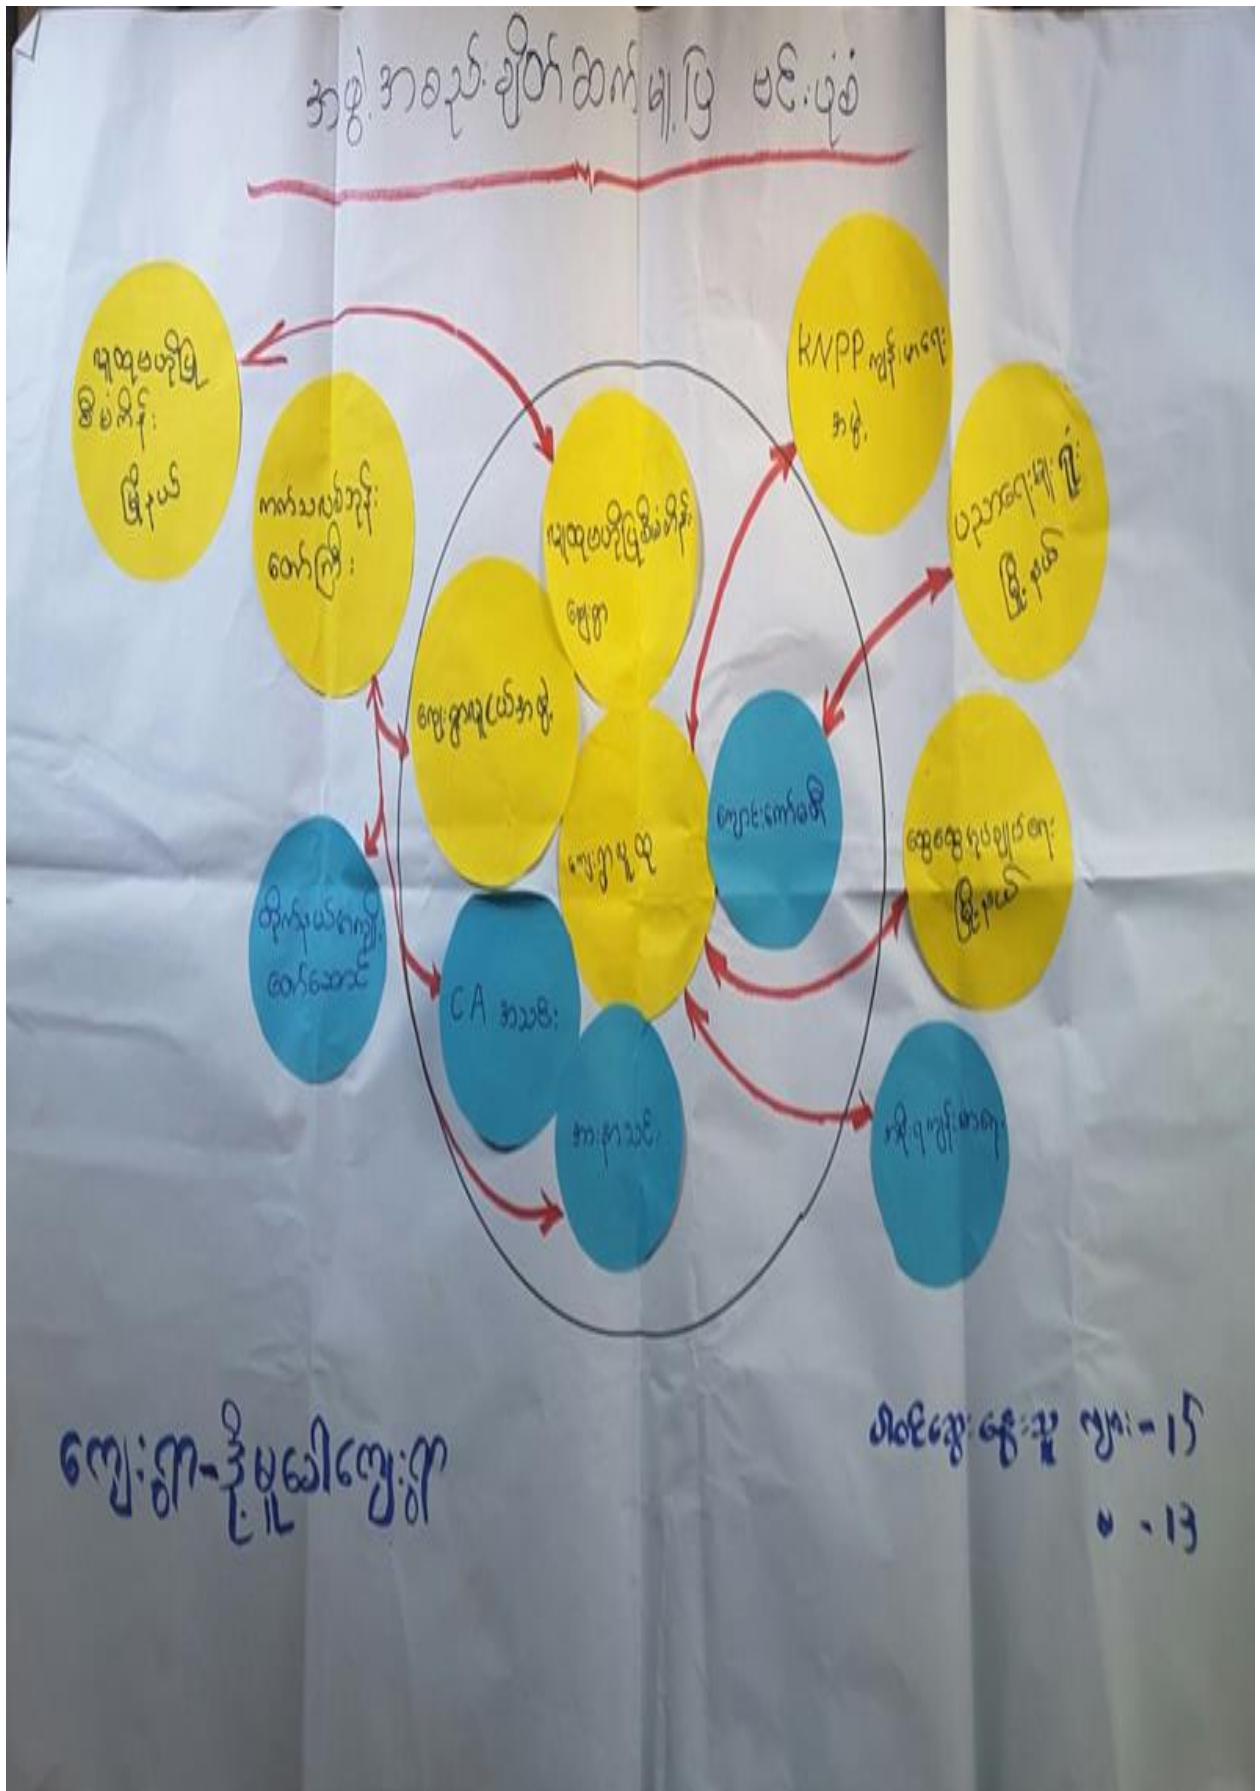 အဖွဲ့အစည်းချိတ်ဆက်မှုပြ ဗင်းပုံစံ
လူထုဗဟိုပြု
စီမံကိန်း
မြို့နယ်
ကက်သလစ်ဘုန်း
တော်ကြီး
လူထုဗဟိုပြုစီမံကိန်း
ကျေးရွာ
KNPP ကျန်းမာရေး
အဖွဲ့
ပညာရေးမှူးရုံး
မြို့နယ်
ကျေးရွာလူငယ်အဖွဲ့
ကျေးရွာလူထု
ကျောင်းကော်မတီ
ထွေထွေအုပ်ချုပ်ရေး
မြို့နယ်
တိုက်နယ်အကျိုး
တော်ဆောင်
CA အသစ်
အားကစသင်း
အစိုးရကျန်းမာရေး
ကျေးရွာ-ဒို့မူခေါကျေးရွာ
ပါဝင်ဆွေးနွေးသူ ကျား - 15
မ - 13